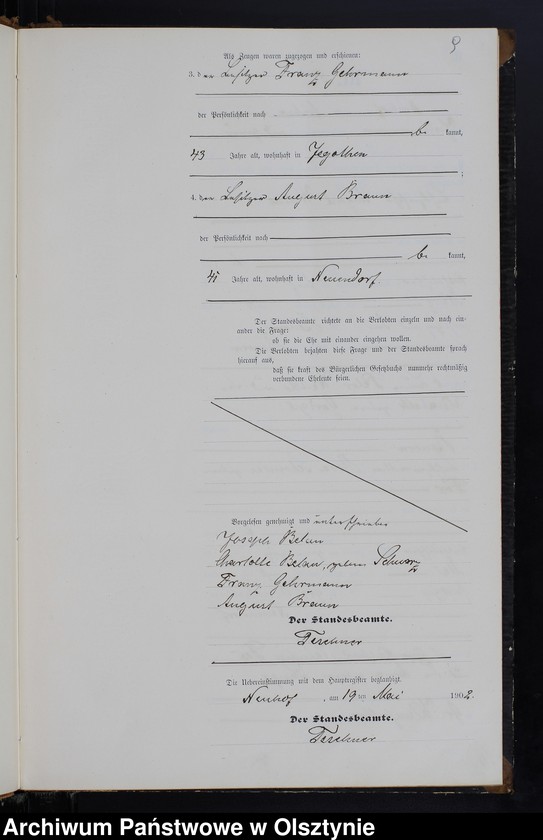 9
Als Zeugen waren zugezogen und erschienen:
3. der Besitzer Franz Gehrmann
der Persönlichkeit nach
be kannt,
43 Jahre alt, wohnhaft in Jegothen
;
4. der Besitzer August Braun
der Persönlichkeit nach
be kannt,
41 Jahre alt, wohnhaft in Neuendorf
Der Standesbeamte richtete an die Verlobten einzeln und nach ein-
ander die Frage:
ob sie die Ehe mit einander eingehen wollen.
Die Verlobten bejahten diese Frage und der Standesbeamte sprach
hierauf aus,
daß sie kraft des Bürgerlichen Gesetzbuchs nunmehr rechtmäßig
verbundene Eheleute seien.
Vorgelesen, genehmigt und unterschrieben
Joseph Belau
Charlotte Belau, geborne Schwarz
Franz Gehrmann
August Braun
Der Standesbeamte.
Terchner
Die Uebereinstimmung mit dem Hauptregister beglaubigt.
Neuhof, am 19 ten Mai 1902.
Der Standesbeamte.
Terchner
Archiwum Państwowe w Olsztynie